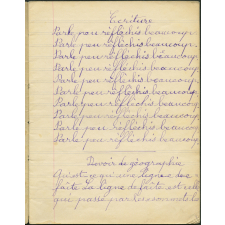 Ecriture
Parle peu réfléchis beaucoup.
Parle peu réfléchis beaucoup.
Parle peu réfléchis beaucoup.
Parle peu réfléchis beaucoup.
Parle peu réfléchis beaucoup
Parle peu réfléchis beaucoup
Parle peu réfléchis beaucoup
Parle peu réfléchis beaucoup
Parle peu réfléchis beaucoup
Devoir de géographie
Qu'est-ce qu'une ligne de
faîte La ligne de faîte est celle
qui passe par les sommets